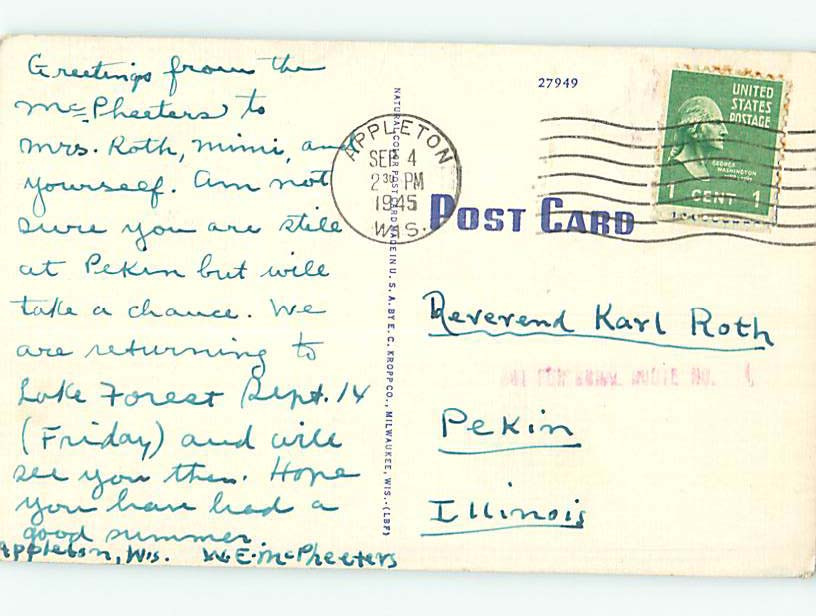 Greetings from the
McPheeters to
Mrs. Roth, Mimi, and
yourself. Am not
sure you are still
at Pekin but will
take a chance. We
are returning to
Lake Forest Sept. 14
(Friday) and will
see you then. Hope
you have had a
good summer.
Appleton, Wis. W.E. McPheeters
NATURAL COLOR POST CARD MADE IN U. S. A. BY E. C. KROPP CO., MILWAUKEE, WIS.
27949
APPLETON
SEP 4
2 30 PM
1945
WIS.
UNITED
STATES
POSTAGE
GEORGE
WASHINGTON
1 CENT 1
POST CARD
Reverend Karl Roth
Pekin
Illinois